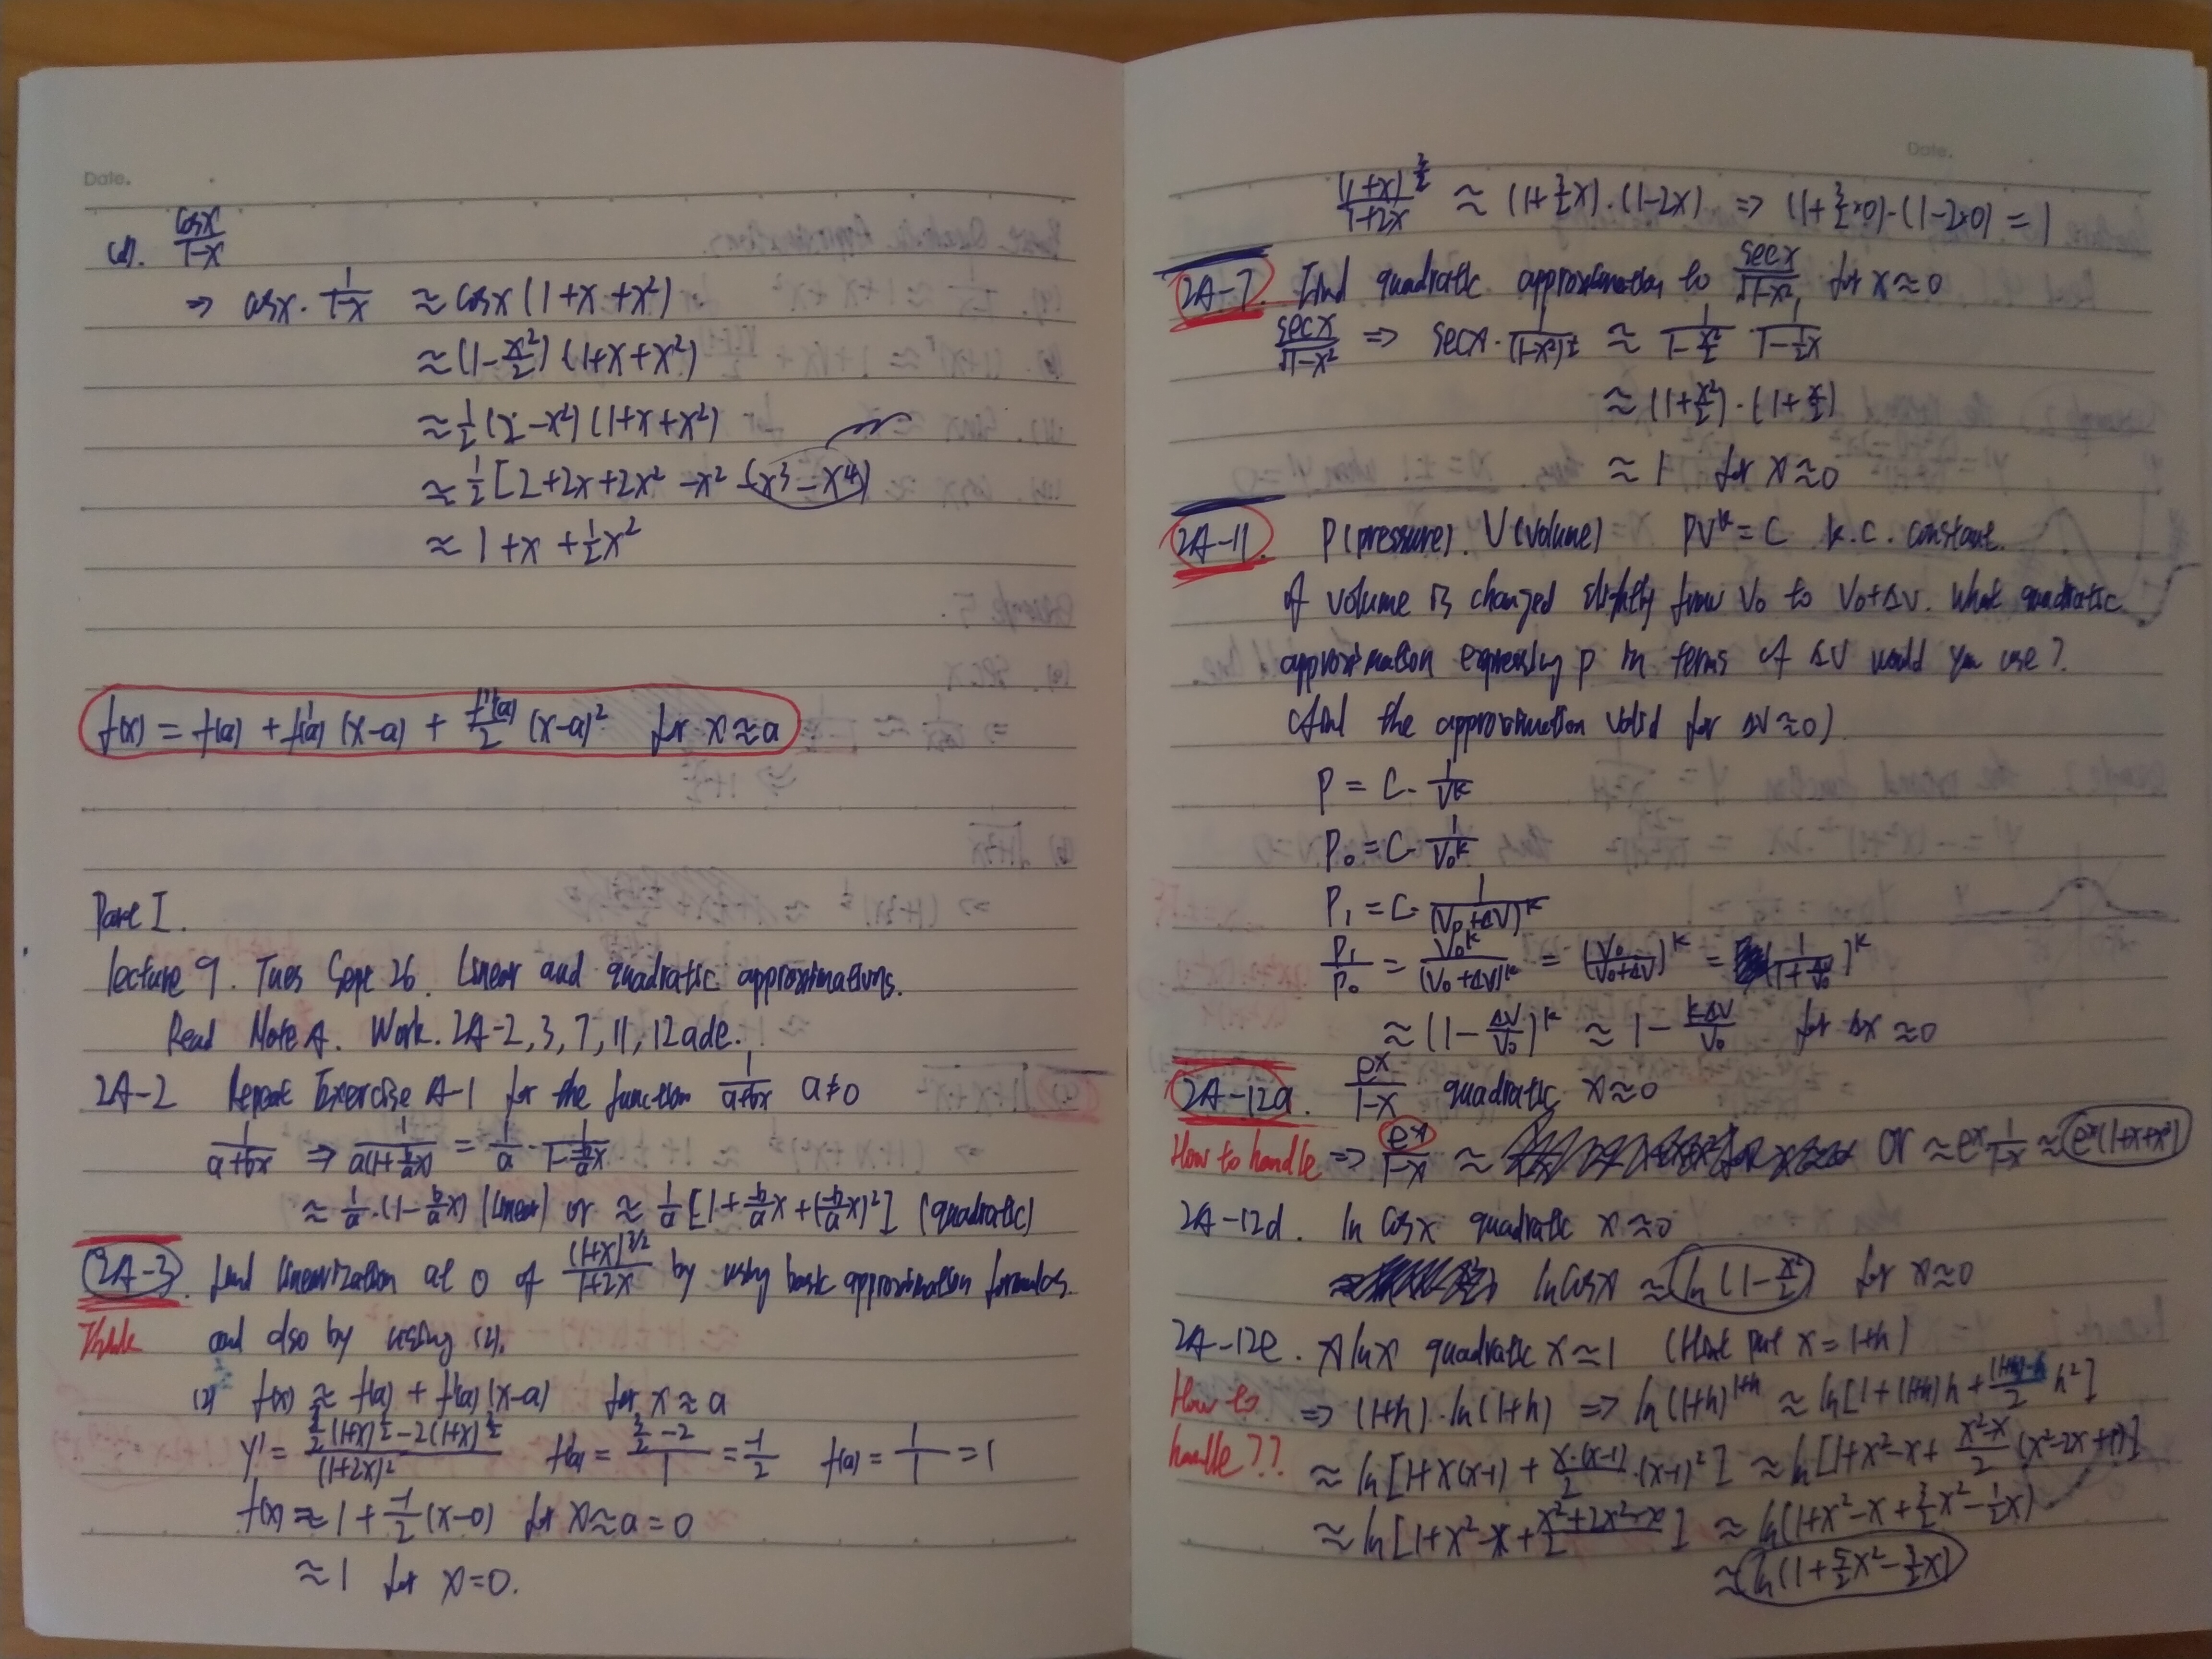 Date.
(d). cosx/(1-x)
⇒ cosx · 1/(1-x) ≈ cosx (1+x+x²)
≈ (1-x²/2) (1+x+x²)
≈ 1/2 (2-x²) (1+x+x²)
≈ 1/2 [2+2x+2x²-x²-x³-x⁴)
≈ 1+x+1/2x²
f(x) = f(a) + f'(a) (x-a) + f''(a)/2 (x-a)² for x≈a
Part I.
Lecture 9. Tues Sept 26. Linear and quadratic approximations.
Read Note A. Work. 2A-2, 3, 7, 11, 12ade.
2A-2 Repeat Exercise A-1 for the function 1/(a+bx) a≠0
1/(a+bx) ⇒ 1/(a(1+b/a x)) = 1/a · 1/(1--b/a x)
≈ 1/a · (1-b/a x) (linear) or ≈ 1/a [1+-b/a x+(-b/a x)²] (quadratic)
2A-3. find linearization at 0 of (1+x)^(3/2)/(1+2x) by using basic approximation formulas.
and also by using (2).
(2) f(x) ≈ f(a) + f'(a) (x-a) for x≈a
y' = (3/2 (1+x)^(1/2) - 2(1+x)^(3/2))/(1+2x)² f'(a) = (3/2 - 2)/1 = -1/2 f(a) = 1/1 = 1
f(x) ≈ 1 + -1/2 (x-0) for x≈a=0
≈ 1 for x=0.
Date.
(1+x)^(3/2)/(1+2x) ≈ (1+3/2x) · (1-2x) ⇒ (1+3/2×0)·(1-2×0) = 1
2A-7. Find quadratic approximation to secx/√(1-x²) for x≈0
secx/√(1-x²) ⇒ secx · 1/(1-x²)^(1/2) ≈ 1/(1-x²/2) · 1/(1-1/2x)
≈ (1+x²/2) · (1+x/2)
≈ 1 for x≈0
2A-11. P(pressure). V(volume) PV^k = C k.c. constant.
if volume is changed slightly from V₀ to V₀+ΔV. What quadratic
approximation expressing p in terms of ΔV would you use?
(find the approximation valid for ΔV≈0)
P = C · 1/V^k
P₀ = C · 1/V₀^k
P₁ = C · 1/(V₀+ΔV)^k
P₁/P₀ = V₀^k/(V₀+ΔV)^k = (V₀/(V₀+ΔV))^k = (1/(1+ΔV/V₀))^k
≈ (1-ΔV/V₀)^k ≈ 1 - kΔV/V₀ for Δx≈0
2A-12a. e^x/(1-x) quadratic x≈0
How to handle ⇒ e^x/(1-x) ≈ or ≈ e^x 1/(1-x) ≈ e^x(1+x+x²)
2A-12d. ln cosx quadratic x≈0
lncosx ≈ ln (1-x²/2) for x≈0
2A-12e. xlnx quadratic x≈1 (Hint put x=1+h)
How to handle??
⇒ (1+h)·ln(1+h) ⇒ ln(1+h)^(1+h) ≈ ln[1+(1+h)h+(1+h)·h/2 h²]
≈ ln[1+x(x-1)+x·(x-1)/2·(x-1)²] ≈ ln[1+x²-x+(x²-x)/2 (x²-2x+1)]
≈ ln[1+x²-x+(x²+2x²-x)/2] ≈ ln(1+x²-x+3/2x²-1/2x)
≈ ln(1+5/2x²-3/2x)